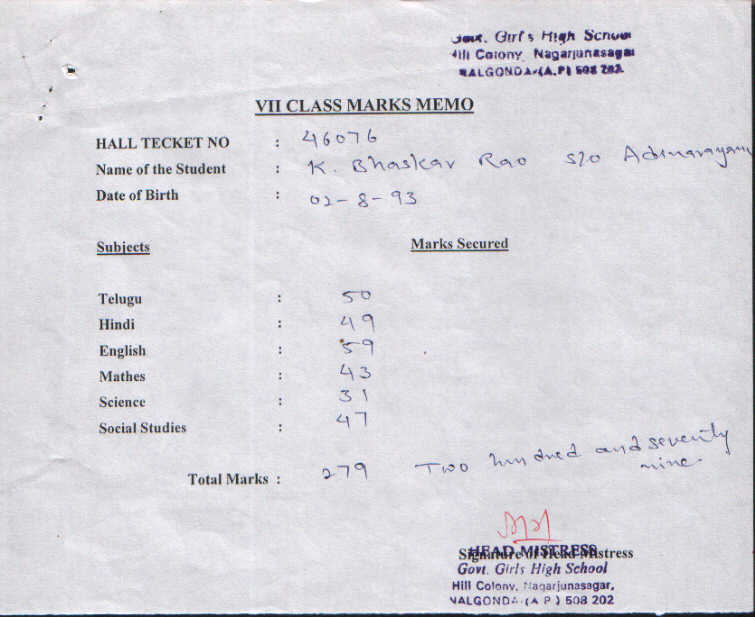 Govt. Girl's High School
Hill Colony, Nagarjunasagar
NALGONDA-(A.P) 508 202.
VII CLASS MARKS MEMO
HALL TECKET NO : 46076
Name of the Student : K. Bhaskar Rao S/o Adinarayana
Date of Birth : 02-8-93
Subjects Marks Secured
Telugu : 50
Hindi : 49
English : 59
Mathes : 43
Science : 31
Social Studies : 47
Total Marks : 279 Two hundred and seventy
nine.
HEAD MISTRESS
Signature of Head Mistress
Govt. Girls High School
Hill Colony, Nagarjunasagar,
NALGONDA-(A P) 508 202